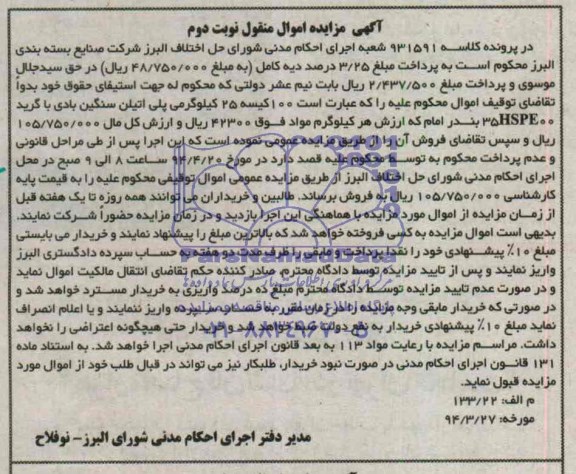 آگهی مزایده اموال منقول نوبت دوم
در پرونده کلاسه ۹۳۱۵۹۱ شعبه اجرای احکام مدنی شورای حل اختلاف البرز شرکت صنایع بسته بندی
البرز محکوم است به پرداخت مبلغ ۳/۲۵ درصد دیه کامل (به مبلغ ۴۸/۷۵۰/۰۰۰ ریال) در حق سیدجلال
موسوی و پرداخت مبلغ ۲/۴۳۷/۵۰۰ ریال بابت نیم عشر دولتی که محکوم له جهت استیفای حقوق خود بدواً
تقاضای توقیف اموال محکوم علیه را که عبارت است ۱۰۰کیسه ۲۵ کیلوگرمی پلی اتیلن سنگین بادی با گرید
۳۵HSPE۰۰ بندر امام که ارزش هر کیلوگرم مواد فوق ۴۲۳۰۰ ریال و ارزش کل مال ۱۰۵/۷۵۰/۰۰۰
ریال و سپس تقاضای فروش آن را از طریق مزایده عمومی نموده است که این اجرا پس از طی مراحل قانونی
و عدم پرداخت محکوم به توسط محکوم علیه قصد دارد در مورخ ۹۴/۴/۲۰ ساعت ۸ الی ۹ صبح در محل
اجرای احکام مدنی شورای حل اختلاف البرز از طریق مزایده عمومی اموال توقیفی محکوم علیه را به قیمت پایه
کارشناسی ۱۰۵/۷۵۰/۰۰۰ ریال به فروش برساند. طالبین و خریداران می توانند همه روزه تا یک هفته قبل
از زمان مزایده از اموال مورد مزایده با هماهنگی این اجرا بازدید و در زمان مزایده حضوراً شرکت نمایند.
بدیهی است اموال مزایده به کسی فروخته خواهد شد که بالاترین مبلغ را پیشنهاد نمایند و خریدار می بایستی
مبلغ ۱۰٪ پیشنهادی خود را نقداً پرداخت و مابقی را ظرف مدت دو هفته به حساب سپرده دادگستری البرز
واریز نمایند و پس از تایید مزایده توسط دادگاه محترم، صادر کننده حکم تقاضای انتقال مالکیت اموال نماید
و در صورت عدم تایید مزایده توسط دادگاه محترم مبلغ ده درصد واریزی به خریدار مسترد خواهد شد و
در صورتی که خریدار مابقی وجه مزایده را در زمان مقرر به حساب سپرده واریز ننمایند و یا اعلام انصراف
نماید مبلغ ۱۰٪ پیشنهادی خریدار به نفع دولت ضبط خواهد شد و خریدار حتی هیچگونه اعتراضی را نخواهد
داشت. مراسم مزایده با رعایت مواد ۱۱۳ به بعد قانون اجرای احکام مدنی اجرا خواهد شد. به استناد ماده
۱۳۱ قانون اجرای احکام مدنی در صورت نبود خریدار، طلبکار نیز می تواند در قبال طلب خود از اموال مورد
مزایده قبول نماید.
م الف: ۱۳۳/۲۲
مورخه: ۹۴/۳/۲۷
مدیر دفتر اجرای احکام مدنی شورای البرز- نوفلاح